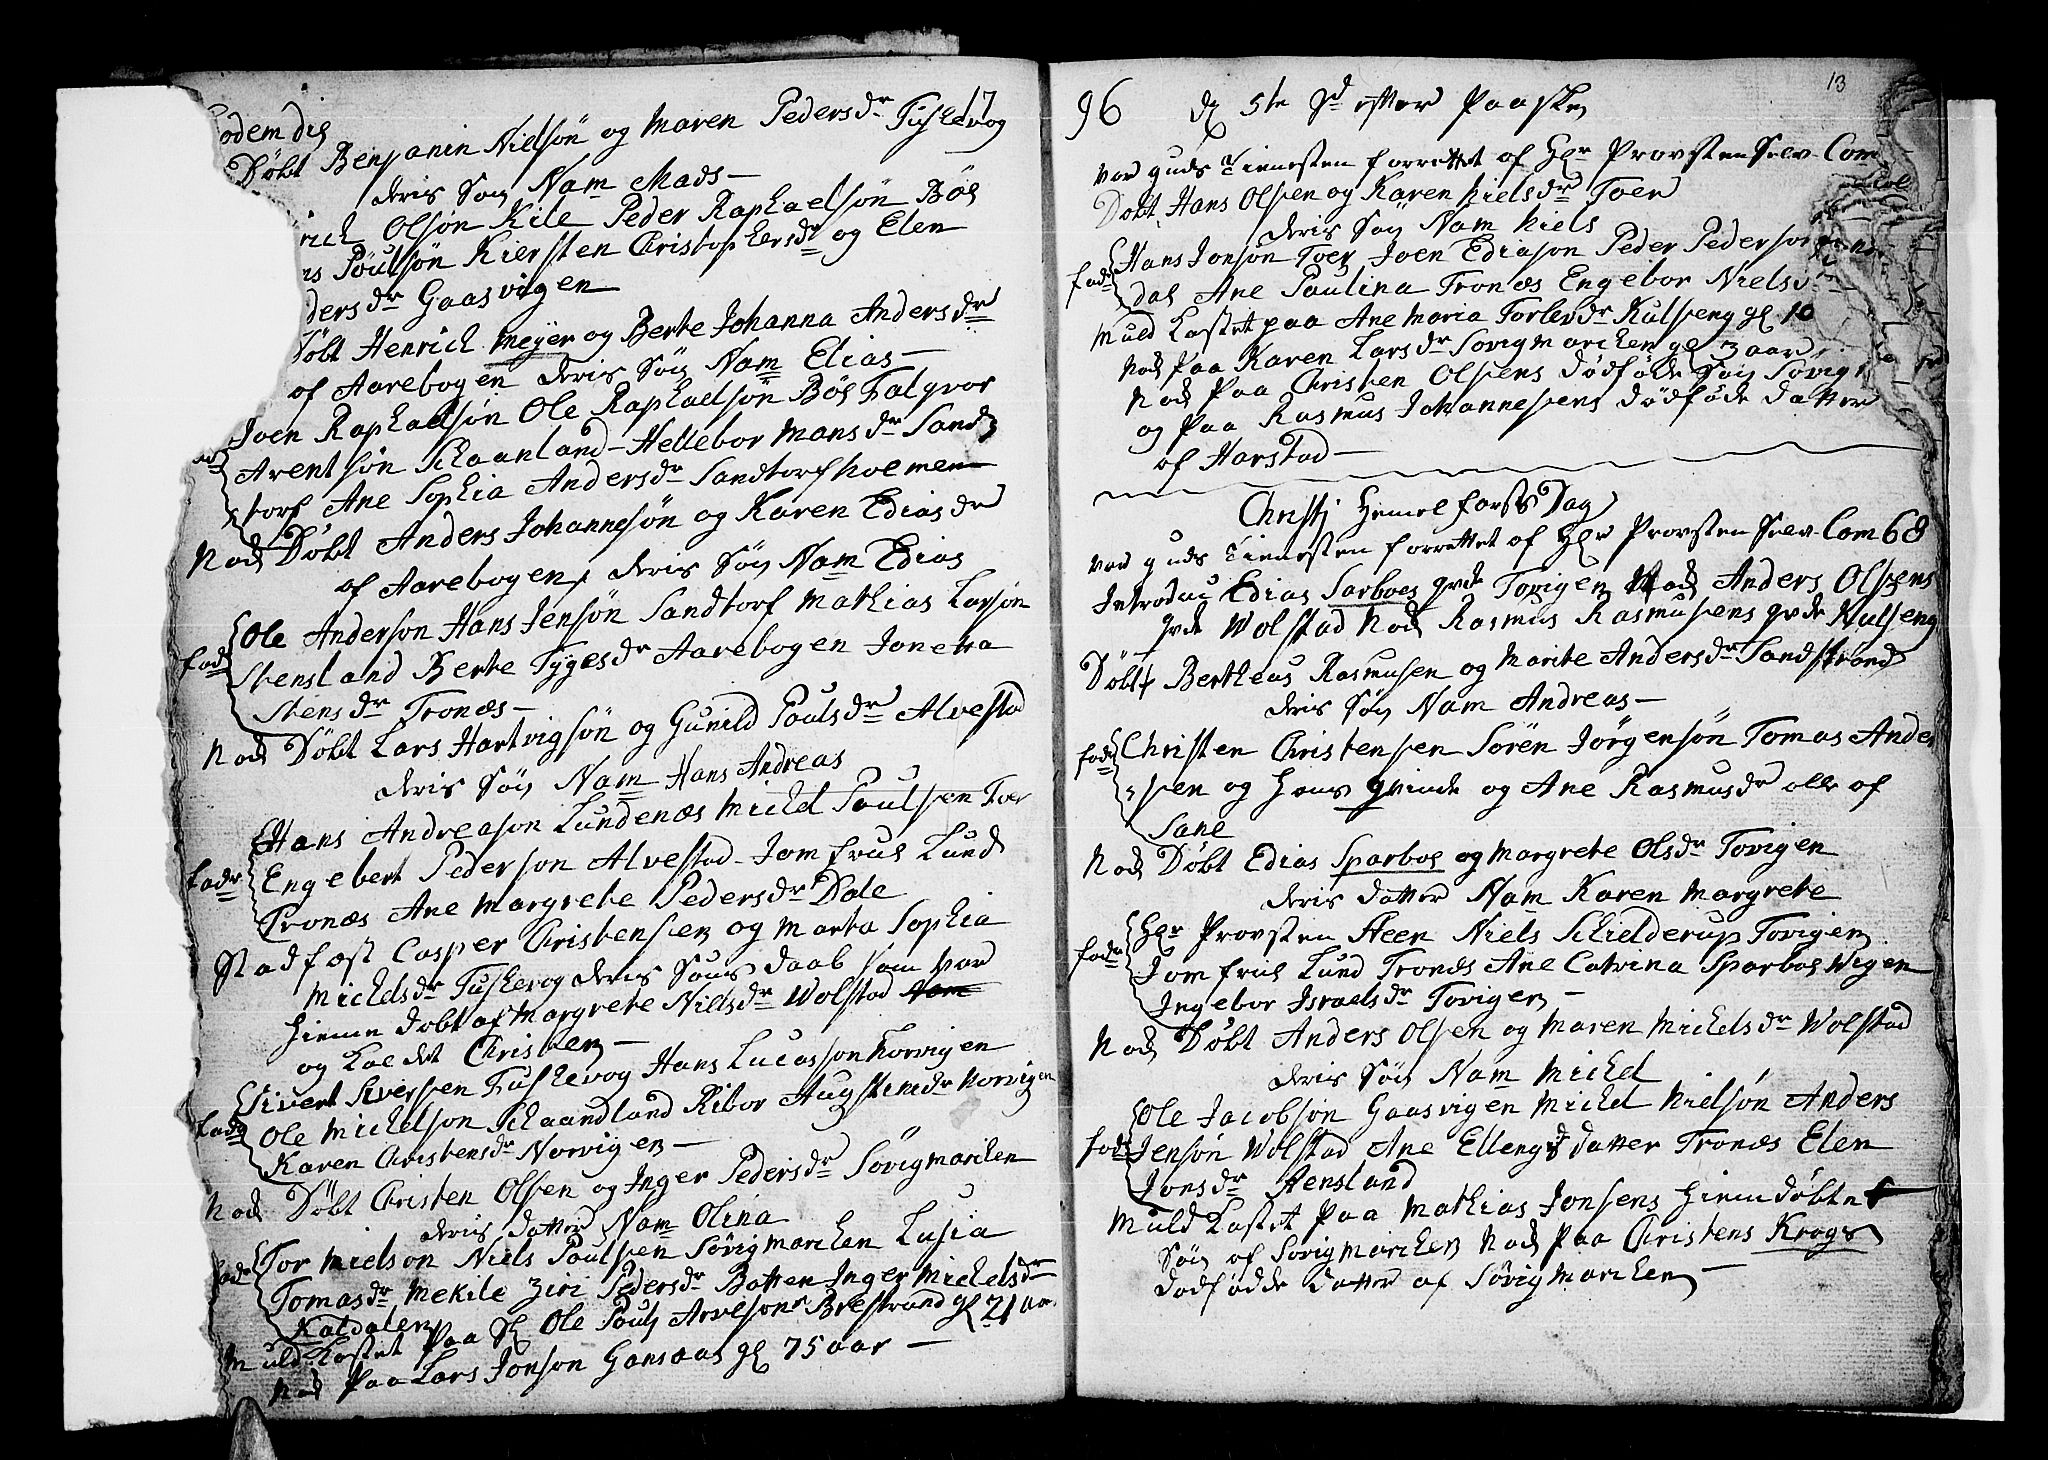 Eodem die
17
Døbt Benjamin Nielsøn og Maren Peders dr Fuskevog
deris Søn Nam Mads —
rich Olsøn Kile Peder Raphaelsøn Böe
ns Pöulsøn Kiersten Christophersdr og Elen
ders dr Gaasvigen
Døbt Henrich Meyer og Berte Johanna Anders dr
of Aarebogen deris Søn Nam Elias —
Joen Raphaelsøn Ole Raphaelsøn Böe Falqvor
Arentsøn Schaanland - Hellebor Mans dr Sand
torf Ane Sophia Anders dr Sandtorfholmen
Nod Døbt Anders Johannesøn og Karen Edias dr
of Aarebogen, deris Søn Nam Edias
fadr Ole Andersøn Hans Jensøn Sandtorf Mathias Larsøn
Stensland Berte Tyges dr Aarebogen Jonetta
Stens dr Tronæs —
Nod Døbt Lars Hartvigsøn og Gunild Pouls dr Alvestad
deris Søn Nam Hans Andreas
Hans Andreasøn Lundenæs Michel Poulsen Toer
fadr Engebert Pedersøn Alvestad - Jomfrue Lund
Tronæs Ane Margrete Peders dr Dale
Stadfæst Casper Christensen og Marta Sophia
Michels dr Fuskevog deris Søns daab som var
hieme døbt af Margrete Niels dr Wolstad
og kaldet Christen —
Sivert Siversen Fuskevog Hans Lucassøn Norvigen
fadr Ole Michelsøn Schaandland Ribor Augstinsdr Norvigen
Karen Christensdr Norvigen —
Nod Døbt Christen Olsen og Inger Peders dr Sörvigmarchen
deris datter Nam Olina
fadr Tor Nielsøn Niels Poulsen Sörvigmarchen Lusia
Tomasdr Mekile Ziri Pedersdr Batten Inger Michelsdr
Kaldalen
Muld kastet Paa Ole Pouls Brestrand gl 21 aar
Nod Paa Lars Jonsøn Gansaas gl 75 aar —
13
96 d 5te Sd efter Paaske
var guds Tienesten forrettet of Hr Provsten Selv - Com
Døbt Hans Olsen og Karen Niels dr Toer
deris Søn Nam Niels
fadr Hans Jonsøn Toer Joen Ediasøn Peder Pedersøn
dal Ane Paulina Tronæs Engebor Niels
Muld kastet paa Ane Maria Torlevdr Kulseng gl 10
Nod Paa Karen Lars dr Sörvigmarchen gl 3 aar
Nod Paa Christen Olsens dødføde Søn Sörvig
og Paa Rasmus Johannesens dødføde datter
of Harstad —
Christj Hemelfarts Dag
var guds Tienesten forrettet of Hr Provsten Selv - Com 68
Introduc Edias Sarboes qvde Torigen Nod Anders Olsens
qvde Wolstad Nod Rasmus Rasmusens qvde Kulseng
Døbt Bertheus Rasmusen og Marite Anders dr Sandstrand
deris Søn Nam Andreas —
fadr Christen Christensen Sörën Jörgensøn Tomas Ander
sen og Hans qvinde og Ane Rasmusdr alle of
Sane
Nod Døbt Edias Sparboe og Margrete Olsdr Torigen
deris datter Nam Karen Margrete
fadr Hr Provsten Steen Niels Schielderup Torigen
Jomfrue Lund Tronæs Ane Catrina Sparboe Wigen
Ingebor Israelsdr Torigen —
Nod Døbt Anders Olsen og Maren Michels dr Wolstad
deris Søn Nam Michel
Ole Jacobsøn Gaasvigen Michel Nielsøn Anders
fadr Jensøn Wolstad Ane Ellengs datter Tronæs Elen
Jonsdr Stensland
Muld kastet Paa Mathias Jonsens hiemdøbte
Søn of Sörvigmarchen Nod Paa Christens Krogs
dødfødde datter af Sörvigmarchen —